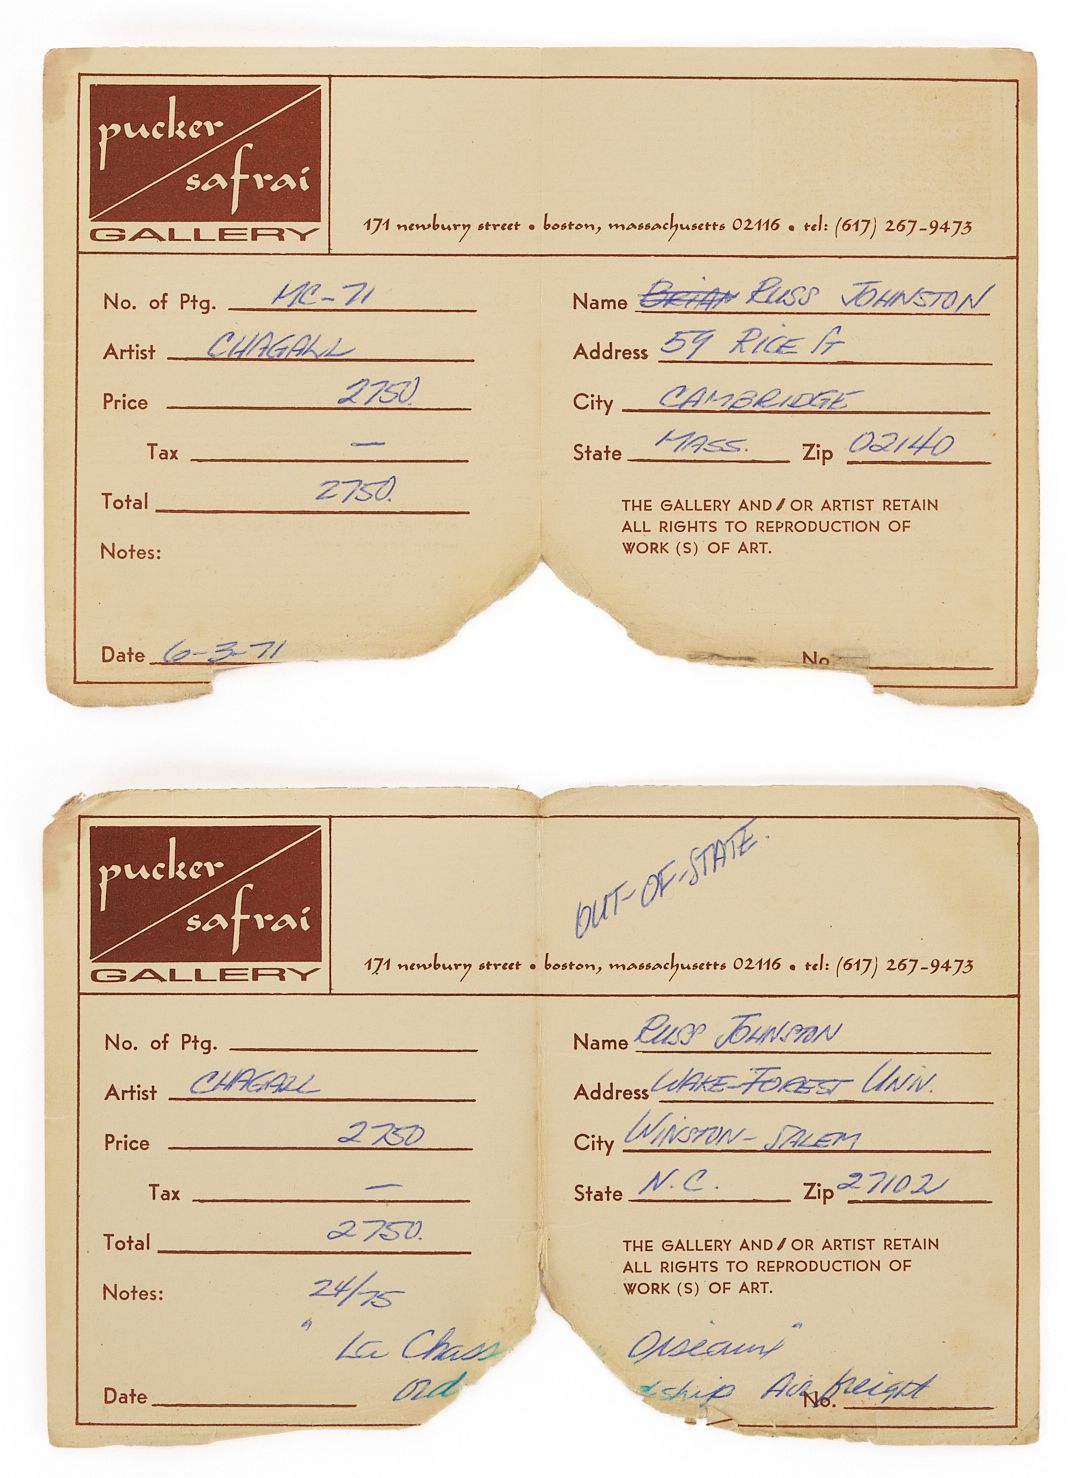 pucker
safrai
GALLERY
171 newbury street • boston, massachusetts 02116 • tel: (617) 267-9473
No. of Ptg. MC-71
Artist CHAGALL
Price 2750.
Tax —
Total 2750.
Notes:
Date 6-3-71
Name BRIAN RUSS JOHNSTON
Address 59 RICE ST
City CAMBRIDGE
State MASS. Zip 02140
THE GALLERY AND/OR ARTIST RETAIN
ALL RIGHTS TO REPRODUCTION OF
WORK (S) OF ART.
No
pucker
safrai
GALLERY
OUT-OF-STATE.
171 newbury street • boston, massachusetts 02116 • tel: (617) 267-9473
No. of Ptg.
Artist CHAGALL
Price 2750
Tax —
Total 2750.
Notes: 24/75
Name RUSS JOHNSTON
Address WAKE-FOREST UNIV.
City WINSTON-SALEM
State N.C. Zip 27102
THE GALLERY AND/OR ARTIST RETAIN
ALL RIGHTS TO REPRODUCTION OF
WORK (S) OF ART.
" La Chass Oiseaux "
ship Air freight
Date
No.